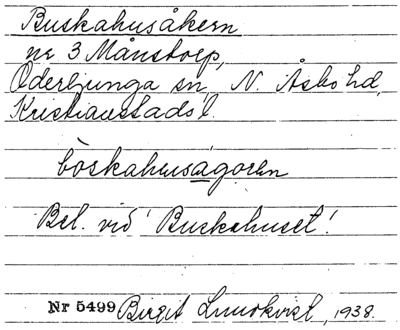 Buskahusåkern
nr 3 Månstorp,
Oderljunga sn, N. Åsbo hd,
Kristianstads l.
böskahusagoren
Bel. vid 'Buskahuset'.
Nr 5499 Birgit Lundkvist, 1938.